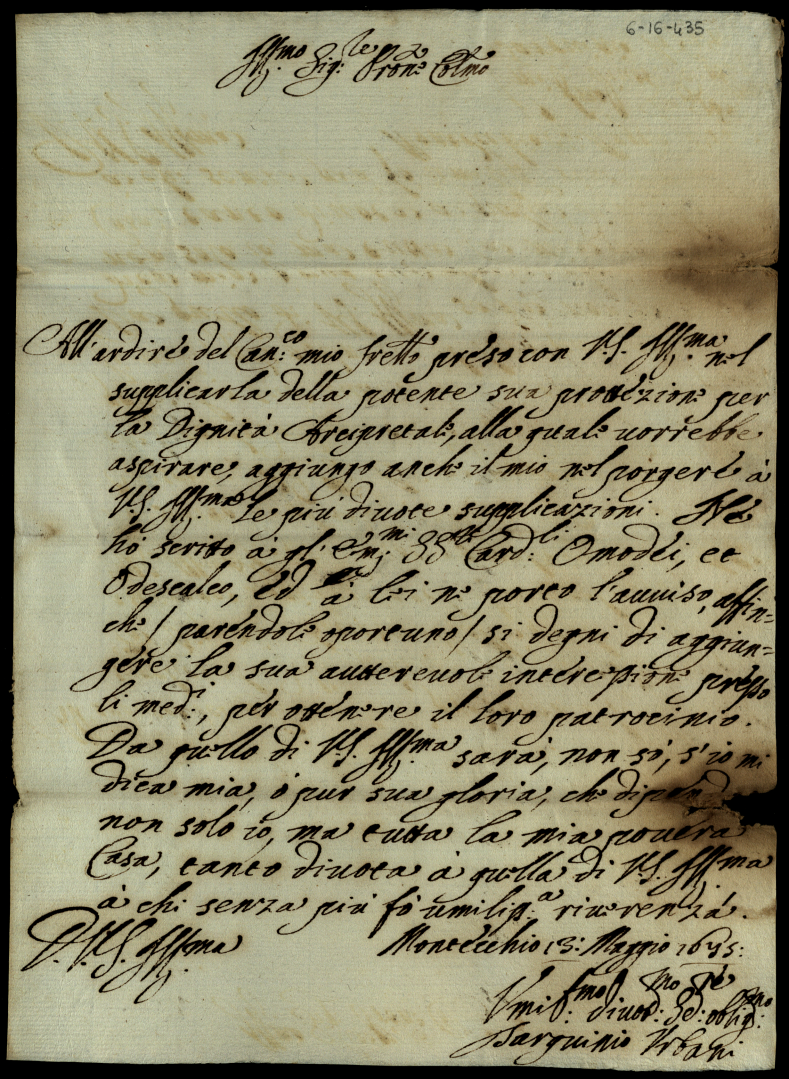 6-16-435
Ill:mo Sig:re Pron:e Col:mo
All'ardire del Can:co mio frello preso con V.S. Ill:ma nel
supplicarla della potente sua protezione per
la Dignità Arcipretale, alla quale uorrebbe
aspirare, aggiungo anche il mio nel porgere à
V.S. Ill:ma le più diuote supplicazioni. Ne
hò scritto à gl' Em:mi SS:ri Card:li Omodei, et
Odescalco, ed à lei ne porto l'auuiso, affin=
che / parendole oportuno / si degni di aggiun=
gere la sua autoreuole intercessione presso
li med:i, per ottenere il loro patrocinio.
Da quello di V.S. Ill:ma sarà, non sò, s'io mi
dica mia, ò pur sua gloria, che dipend
non solo io, ma tutta la mia pouera
Casa, tanto diuota à quella di V.S. Ill:ma
à chi senza più fò umiliss:a riuerenza.
D. V.S. Ill:ma Montecchio 13: Maggio 1675:
Vmil:mo diuot:mo Ser:re oblig:mo
Tarquinio Vrbani